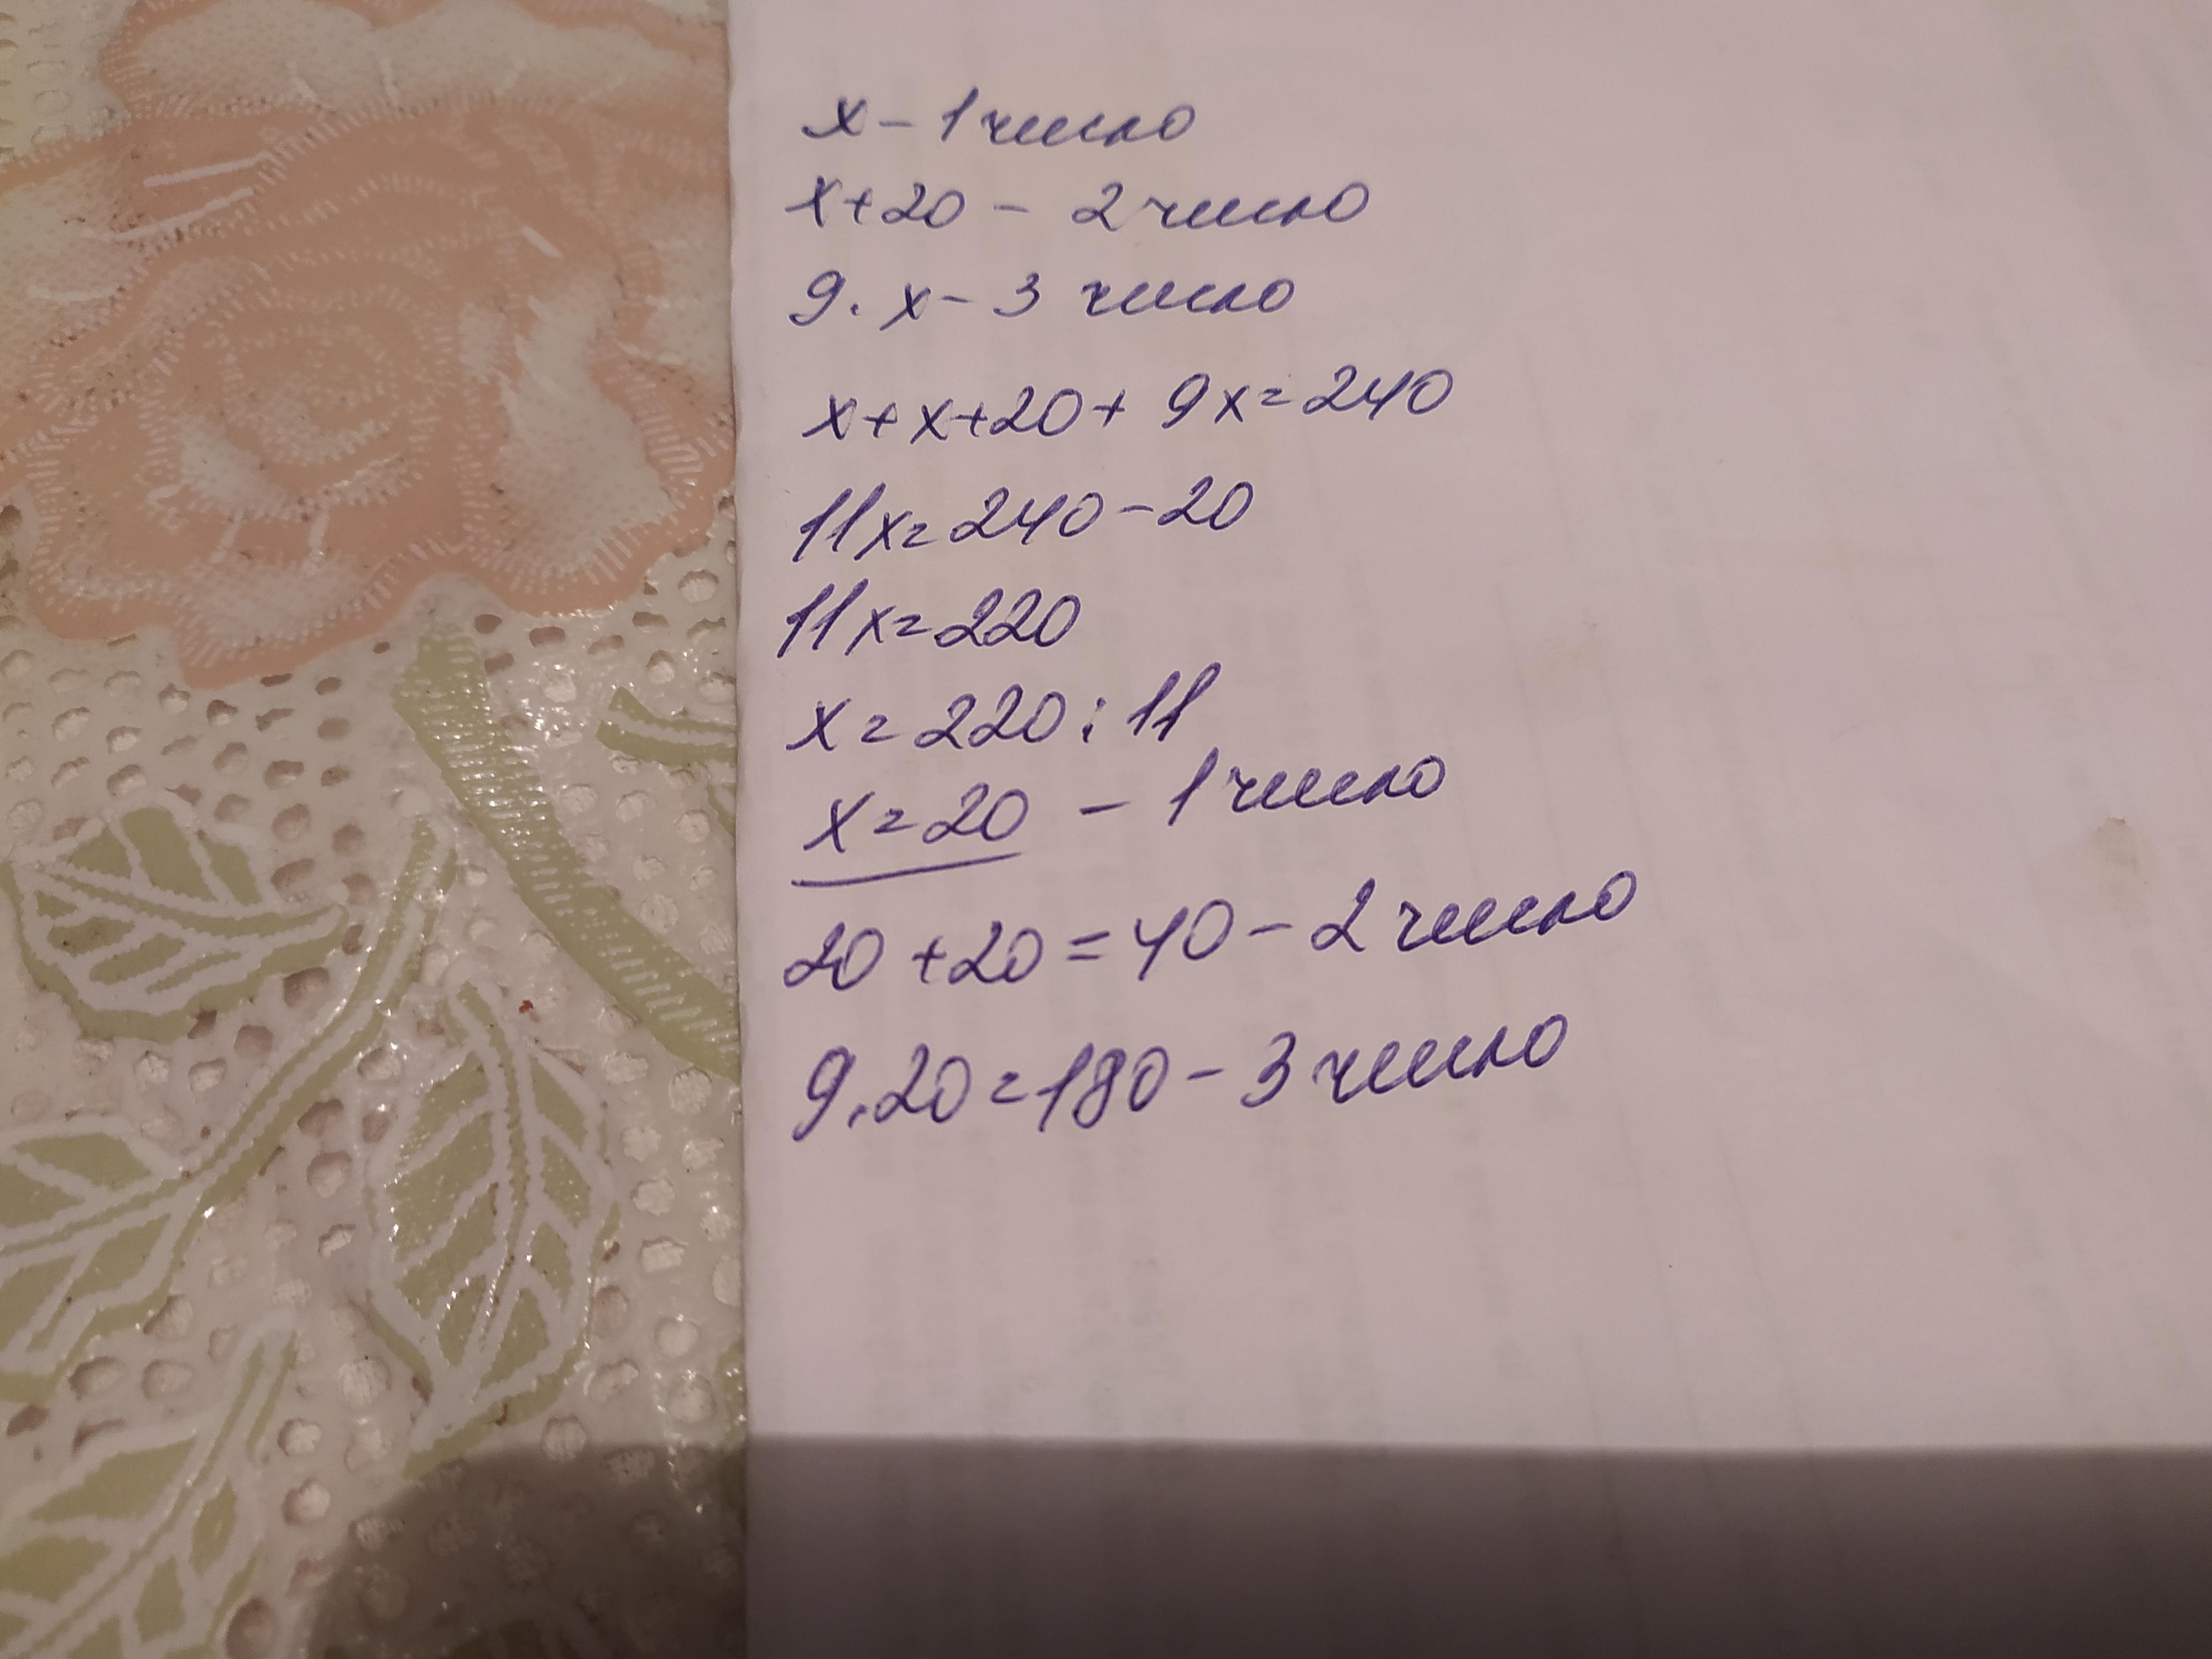 x - 1 число
x+20 - 2 число
9. x - 3 число
x+x+20+ 9x=240
11x=240-20
11x=220
x=220:11
x=20 - 1 число
20+20=40-2 число
9.20=180-3 число